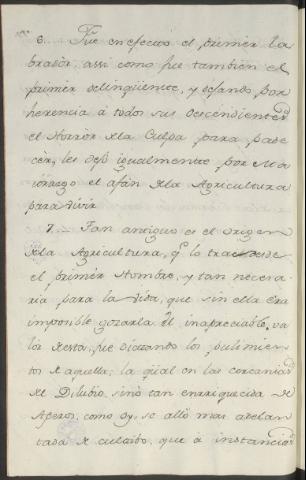 6.... Fue en efecto el primer la
brador, assi como fue tambien el
primer delinquente, y dejando por
herencia à todos sus descendientes
el Horror de la Culpa para pade
cèr, les dejò igualmente por Ma
iorazgo el afàn de la Agricultura
para vivir.
7.... Tan antiguo es el origen
de la Agricultura, q.e lo trae desde
el primer Hombre, y tan necesa
ria para la vida, que sin ella èra
imposible gozarla. El inapreciable va
lor de esta, fue dictando los pulimien
tos de aquella; la qual en las cercanias
del Dilubio, sinò tan enrriquecida de
Aperos, como oy, se allò mas adelan
tada de cultibo, que à instancias